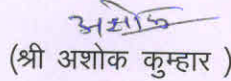 अशोक
(श्री अशोक कुम्हार )